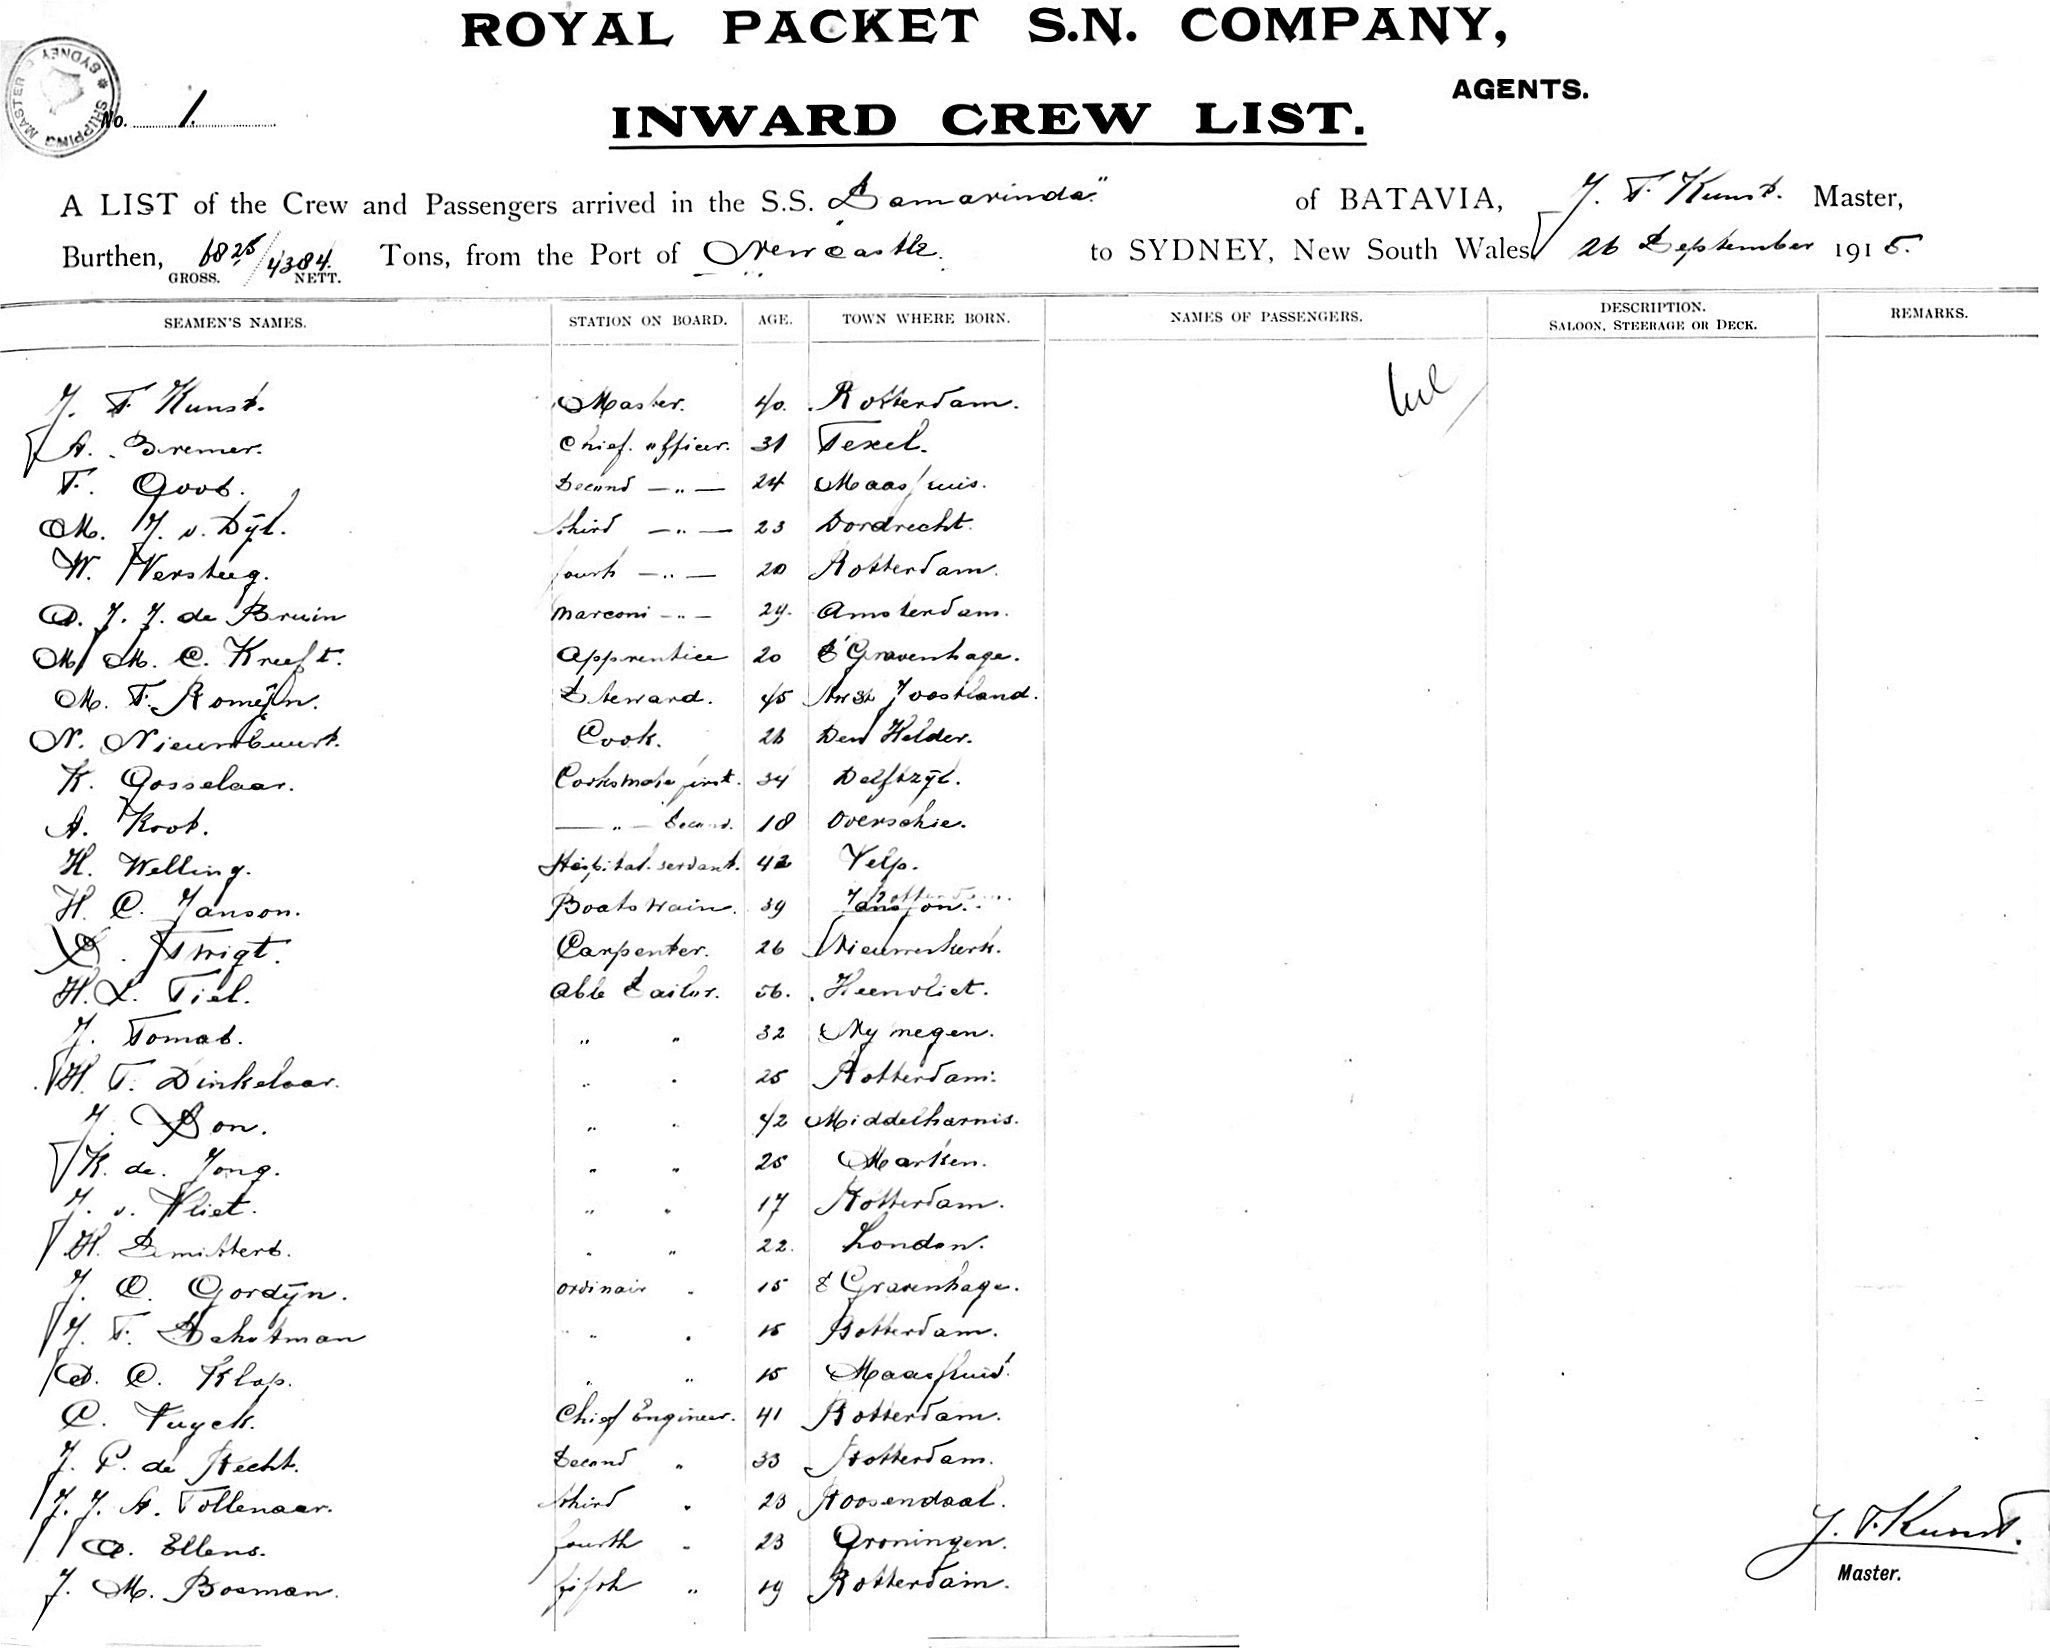 ROYAL PACKET S.N. COMPANY,
AGENTS.
SHIPPING MASTER SYDNEY
No. 1.
INWARD CREW LIST.
A LIST of the Crew and Passengers arrived in the S.S. Samarinda" of BATAVIA, J. F. Kunst. Master,
Burthen, 6825/4384. Tons, from the Port of Newcastle. to SYDNEY, New South Wales 26 September 1915.
GROSS. NETT.
SEAMEN'S NAMES. STATION ON BOARD. AGE. TOWN WHERE BORN. NAMES OF PASSENGERS. DESCRIPTION. SALOON, STEERAGE OR DECK. REMARKS.
J. F. Kunst. Master. 40. Rotterdam.
A. Bremer. Chief. officer. 31 Texel.
F. Goos. Second —„— 24 Maassluis.
M. J. v. Dÿl. third —„— 23 Dordrecht.
W. Versteeg. fourth —„— 20 Rotterdam.
J. J. de Bruin Marconi —„— 29. Amsterdam.
M. M. C. Kreeft. Apprentice 20 S'Gravenhage.
M. F. Romeÿn. Steward. 45 Joostland.
N. Nieuwbuurt. Cook. 26 Den Helder.
K. Gosselaar. Cooksmate first. 34 Delfzÿl.
A. Koot. —„— Second. 18 Overschie.
H. Welling. Hospital. servant. 42 Velp.
H. C. Janson. Boatswain. 39 Rotterdam.
Twigt. Carpenter. 26 Nieuwerkerk.
H. L. Tiel. Able Sailor. 56. Heenvliet.
J. Tomas. „ „ 32 Nymegen.
H. F. Dinkelaar. „ „ 25 Rotterdam.
J. Don. „ „ 42 Middelharnis.
K. de. Jong. „ „ 25 Marken.
J. v. Vliet. „ „ 17 Rotterdam.
H. Smitters. „ „ 22. London.
J. C. Gordÿn. ordinair „ 15 S Gravenhage.
J. F. Schotman „ „ 15 Rotterdam.
C. Klop. „ „ 15 Maassluis.
C. Tuyck. Chief Engineer. 41 Rotterdam.
J. P. de Hecht. Second „ 33 Rotterdam.
J. J. A. Tollenaar. third „ 23 Roosendaal.
Ellens. fourth „ 23 Groningen.
J. M. Bosman. fifth „ 19 Rotterdam.
J. F. Kunst.
Master.